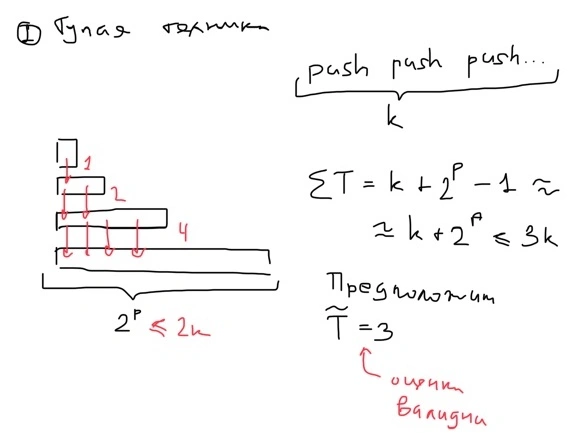 I Тупая техника
push push push...
k
1
2
4
2^p ≤ 2k
ΣT = k + 2^p - 1 ≈
≈ k + 2^p ≤ 3k
Предположим
T̃ = 3
оценка
валидна